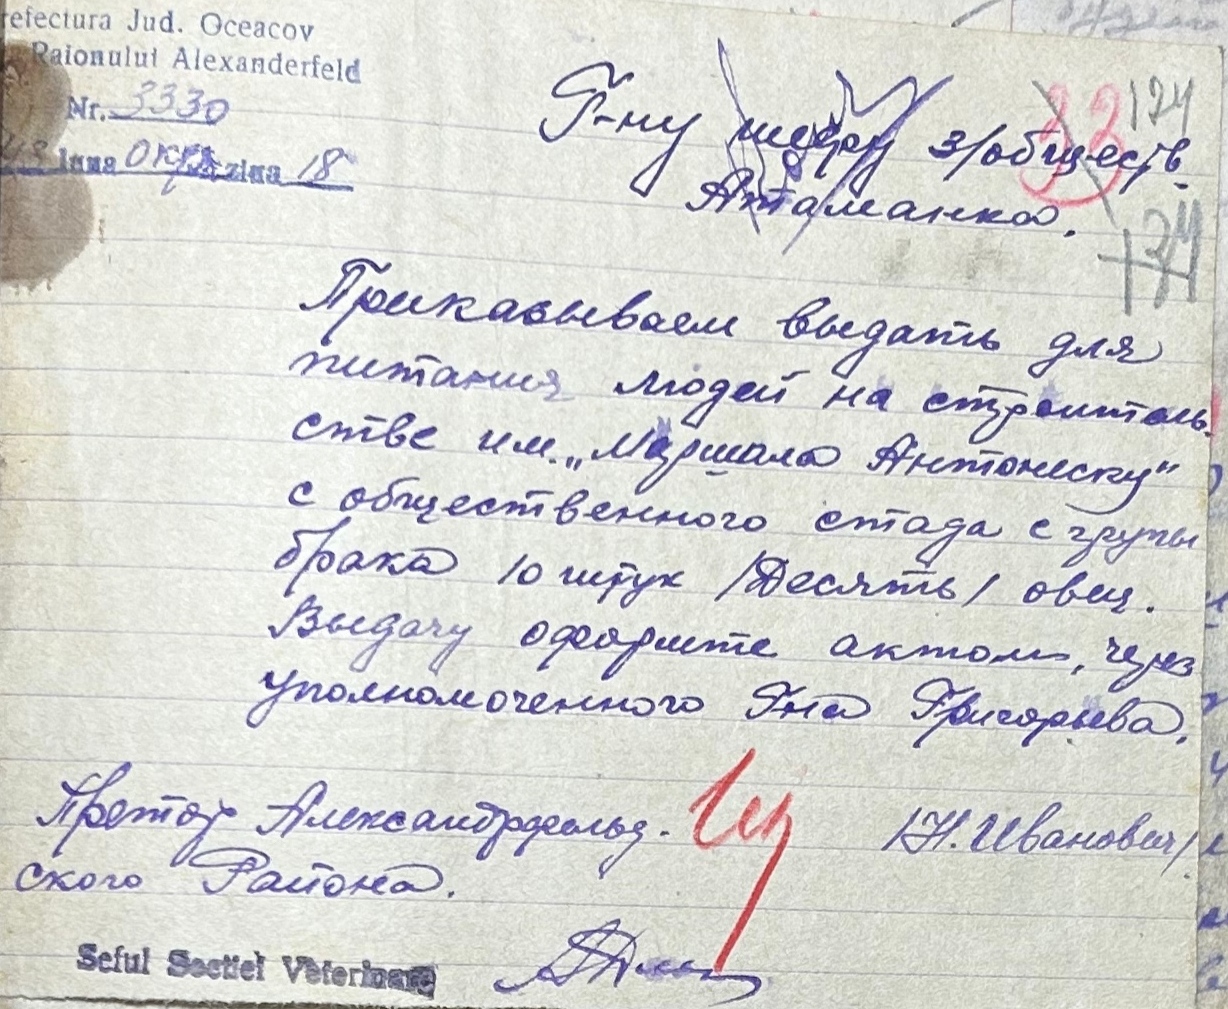 refectura Jud. Oceacov
Raionului Alexanderfeld
Nr. 3330
43 luna Окт. ziua 18
Г-ну шефу з/обществ.
Атаманка.
33
124
134
Приказываем выдать для
питания людей на строитель-
стве им. „Маршала Антонеску"
с общественного стада с групы
брака 10 штук /Десять/ овец.
Выдачу оформите актом, через
уполномоченного Гна Григорьева.
Претор Александрфельд-
ского Района.
/Н. Иванович/
Seful Sectiei Veterinare